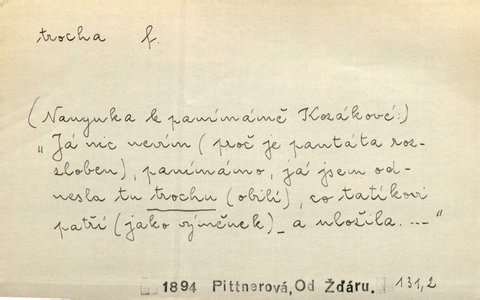 trocha f.
(Nanynka k panímámě Kozákové:)
„Já nic nevím (proč je pantáta roz-
zloben), panímámo, já jsem od-
nesla tu trochu (obilí), co tatíkovi
patří (jako výměnek) _ a uložila. ..."
1894 Pittnerová, Od Žďáru. 131,2